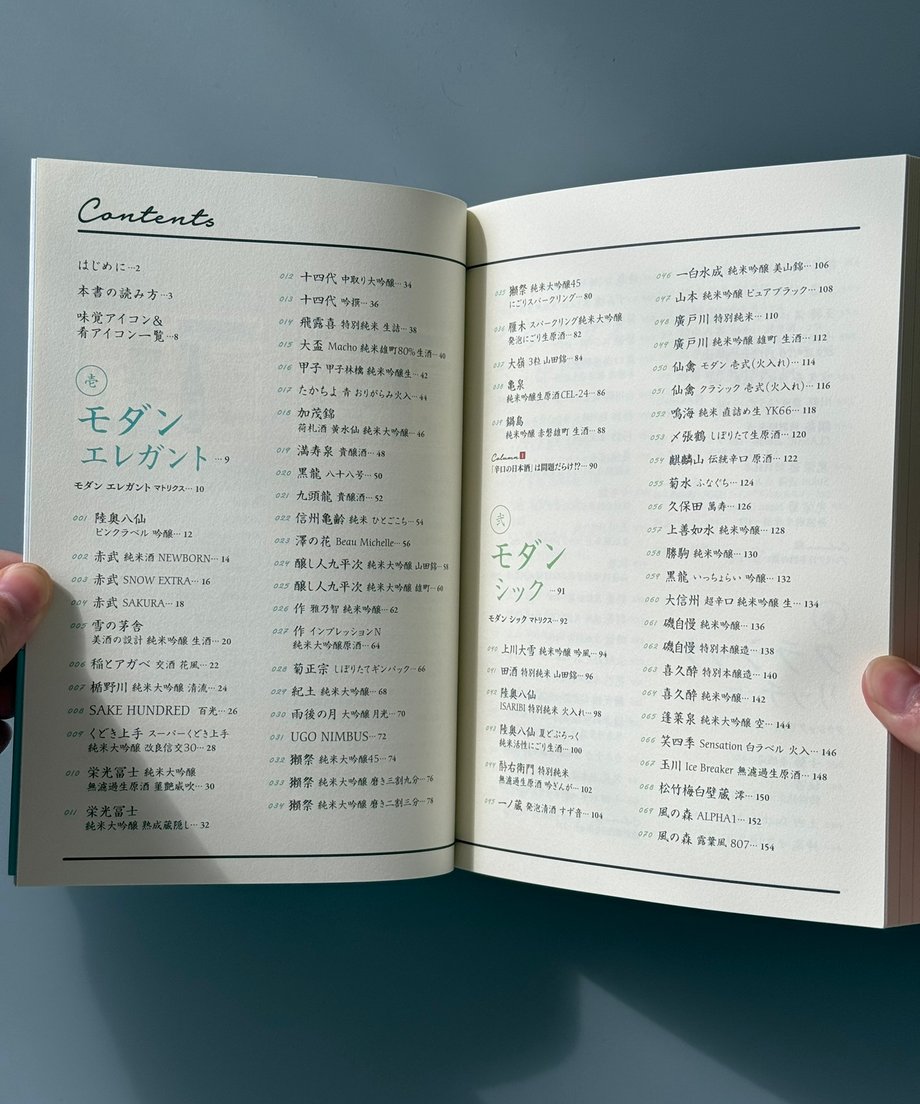 Contents
はじめに…2
本書の読み方…3
味覚アイコン&
肴アイコン一覧…8
壱
モダン
エレガント…9
モダン エレガント マトリクス…10
001 陸奥八仙
ピンクラベル 吟醸…12
002 赤武 純米酒 NEWBORN…14
003 赤武 SNOW EXTRA…16
004 赤武 SAKURA…18
005 雪の茅舎
美酒の設計 純米吟醸 生酒…20
006 稲とアガベ 交酒 花風…22
007 楯野川 純米大吟醸 清流…24
008 SAKE HUNDRED 百光…26
009 くどき上手 スーパーくどき上手
純米大吟醸 改良信交30…28
010 栄光冨士 純米大吟醸
無濾過生原酒 菫艶威吹…30
011 栄光冨士
純米大吟醸 熟成蔵隠し…32
012 十四代 中取り大吟醸…34
013 十四代 吟撰…36
014 飛露喜 特別純米 生詰…38
015 大盃 Macho 純米雄町80%生酒…40
016 甲子 甲子林檎 純米吟醸生…42
017 たかちよ 青 おりがらみ火入…44
018 加茂錦
荷札酒 黄水仙 純米大吟醸…46
019 満寿泉 貴醸酒…48
020 黒龍 八十八号…50
021 九頭龍 貴醸酒…52
022 信州亀齢 純米 ひとごこち…54
023 澤の花 Beau Michelle…56
024 醸し人九平次 純米大吟醸 山田錦…58
025 醸し人九平次 純米大吟醸 雄町…60
026 作 雅乃智 純米吟醸…62
027 作 インプレッションN
純米大吟醸原酒…64
028 菊正宗 しぼりたてギンパック…66
029 紀土 純米大吟醸…68
030 雨後の月 大吟醸 月光…70
031 UGO NIMBUS…72
032 獺祭 純米大吟醸45…74
033 獺祭 純米大吟醸 磨き二割九分…76
034 獺祭 純米大吟醸 磨き二割三分…78
035 獺祭 純米大吟醸45
にごりスパークリング…80
036 雁木 スパークリング純米大吟醸
発泡にごり生原酒…82
037 大嶺 3粒 山田錦…84
038 亀泉
純米吟醸生原酒CEL-24…86
039 鍋島
純米吟醸 赤磐雄町 生酒…88
Column 1
「辛口の日本酒」は問題だらけ!?…90
弐
モダン
シック…91
モダン シック マトリクス…92
040 上川大雪 純米吟醸 吟風…94
041 田酒 特別純米 山田錦…96
042 陸奥八仙
ISARIBI 特別純米 火入れ…98
043 陸奥八仙 夏どぶろっく
純米活性にごり生酒…100
044 酔右衛門 特別純米
無濾過生原酒 吟ぎんが…102
045 一ノ蔵 発泡清酒 すず音…104
046 一白水成 純米吟醸 美山錦…106
047 山本 純米吟醸 ピュアブラック…108
048 廣戸川 特別純米…110
049 廣戸川 純米吟醸 雄町 生酒…112
050 仙禽 モダン 壱式(火入れ)…114
051 仙禽 クラシック 壱式(火入れ)…116
052 鳴海 純米 直詰め生 YK66…118
053 〆張鶴 しぼりたて生原酒…120
054 麒麟山 伝統辛口 原酒…122
055 菊水 ふなぐち…124
056 久保田 萬寿…126
057 上善如水 純米吟醸…128
058 勝駒 純米吟醸…130
059 黒龍 いっちょらい 吟醸…132
060 大信州 超辛口 純米吟醸 生…134
061 磯自慢 純米吟醸…136
062 磯自慢 特別本醸造…138
063 喜久酔 特別本醸造…140
064 喜久酔 純米吟醸…142
065 蓬莱泉 純米大吟醸 空…144
066 笑四季 Sensation 白ラベル 火入…146
067 玉川 Ice Breaker 無濾過生原酒…148
068 松竹梅白壁蔵 澪…150
069 風の森 ALPHA1…152
070 風の森 露葉風 807…154